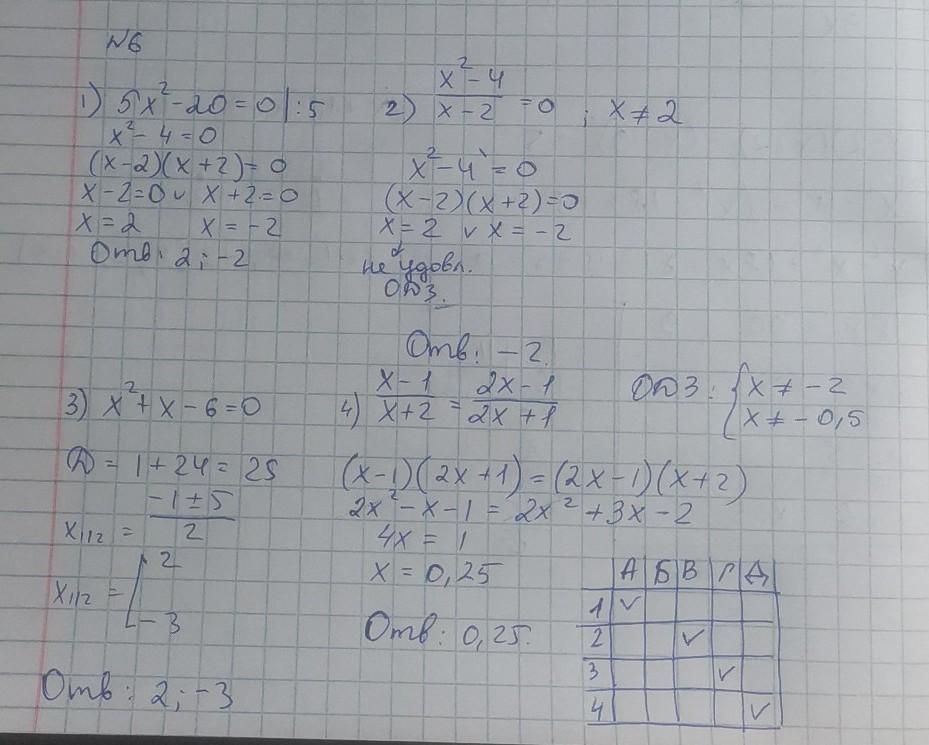 N6
1) 5x² - 20 = 0 | : 5
x² - 4 = 0
(x-2)(x+2) = 0
x - 2 = 0 ∨ x + 2 = 0
x = 2 x = -2
Отв: 2; -2
2) (x² - 4)/(x - 2) = 0 ; x ≠ 2
x² - 4 = 0
(x-2)(x+2) = 0
x = 2 ∨ x = -2
не удовл.
ОДЗ.
Отв: -2.
3) x² + x - 6 = 0
D = 1 + 24 = 25
x1,2 = (-1 ± 5)/2
x1,2 = [ 2
-3
Отв: 2; -3
4) (x - 1)/(x + 2) = (2x - 1)/(2x + 1) ОДЗ: { x ≠ -2
x ≠ -0,5
(x-1)(2x+1) = (2x-1)(x+2)
2x² - x - 1 = 2x² + 3x - 2
4x = 1
x = 0,25
Отв: 0,25.
А Б В Г Д
1 ✓
2 ✓
3 ✓
4 ✓